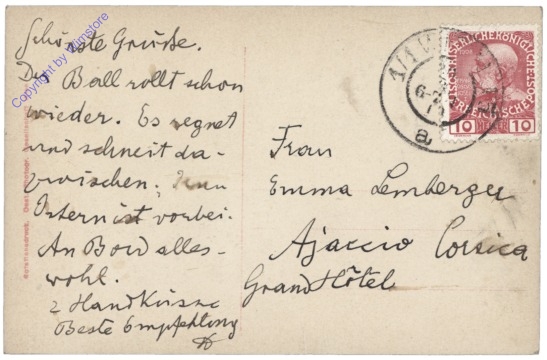 Schönste Grüsse.
Der Ball rollt schon
wieder. Es regnet
und schneit da-
zwischen.
Ostern ist vorbei.
An Bord alles-
wohl.
2 Handküsse
Beste Empfehlung
Frau
Emma Lemberger
Ajaccio Corsica
Grand Hôtel
1/1 WIEN
6
a
KAISERLICHEKÖNIGLICHE
ÖSTERREICHISCHE POST
10 HELLER 10
Copyright by Wimstore